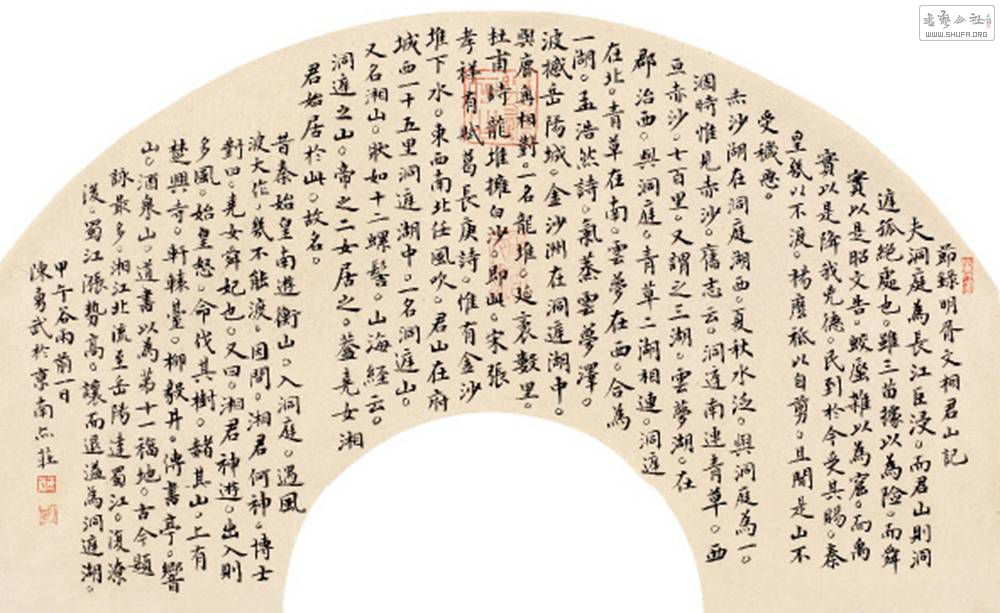 節錄明胥文相君山記
夫洞庭為長江巨浸。而君山則洞
庭孤絕處也。雖三苗據以為險。而舜
實以是昭文告。蛟鼉雜以為窟。而禹
實以是降我堯德。民到於今受其賜。秦
皇幾以不渡。楊麼祗以自剪。且聞是山不
受穢惡。
赤沙湖在洞庭湖西。夏秋水泛。與洞庭為一。
涸時惟見赤沙。舊志云。洞庭南連青草。西
亘赤沙。七百里。又謂之三湖。雲夢湖。在
郡治西。與洞庭。青草二湖相連。洞庭
在北。青草在南。雲夢在西。合為
一湖。孟浩然詩。氣蒸雲夢澤。
波撼岳陽城。金沙洲在洞庭湖中。
與角相對。一名龍堆。延袤數里。
杜甫詩龍堆擁白沙。即此。宋張
孝祥有賦葛長庚詩。惟有金沙
堆下水。東西南北任風吹。君山在府
城西一十五里洞庭湖中。一名洞庭山。
又名湘山。狀如十二螺髻。山海經云。
洞庭之山。帝之二女居之。蓋堯女湘
君始居於此。故名。
昔秦始皇南遊衡山。入洞庭。遇風
波大作。幾不能渡。因問。湘君何神。博士
對曰。堯女舜妃也。又曰。湘君神遊。出入則
多風。始皇怒。命伐其樹。赭其山。上有
楚興寺。軒轅臺。柳毅井。傳書亭。響
山。酒泉山。道書以為第十一福地。古今題
詠最多。湘江北流至岳陽達蜀江。復潦
後。蜀江漲勢高。讓而退溢為洞庭湖。
甲午谷雨前一日
陳勇武於京南
書藝公社
WWW.SHUFA.ORG